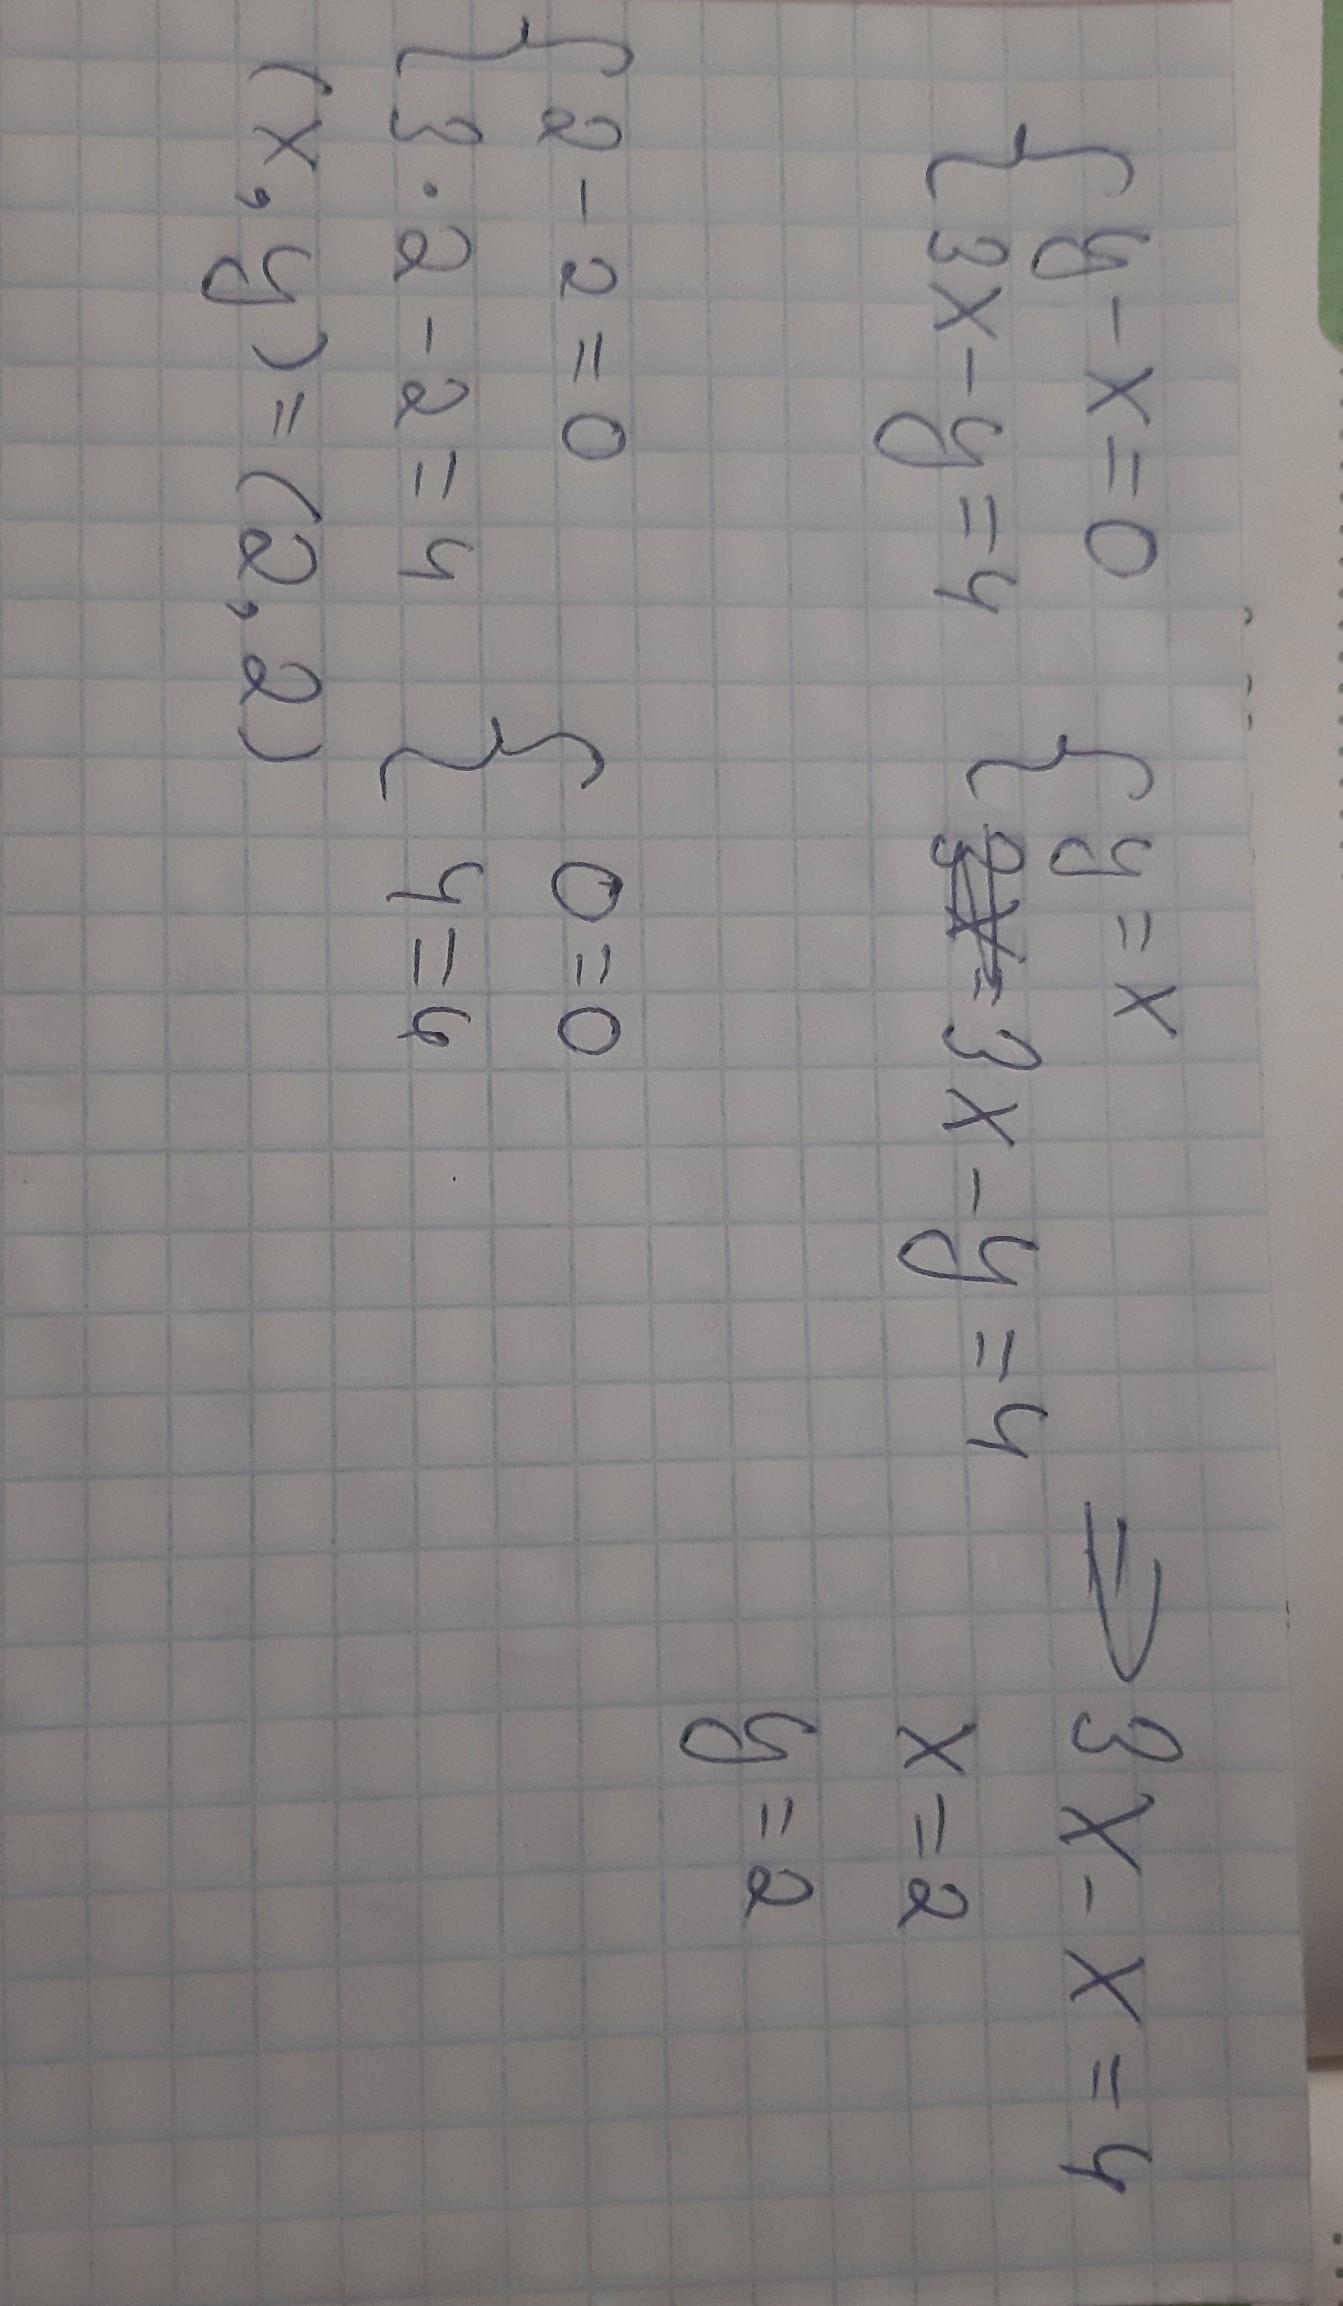 { y - x = 0
{ 3x - y = 4
{ y = x
{ 3x - y = 4
⇒ 3x - x = 4
x = 2
y = 2
{ 2 - 2 = 0
{ 3 · 2 - 2 = 4
{ 0 = 0
{ 4 = 4
(x, y) = (2, 2)